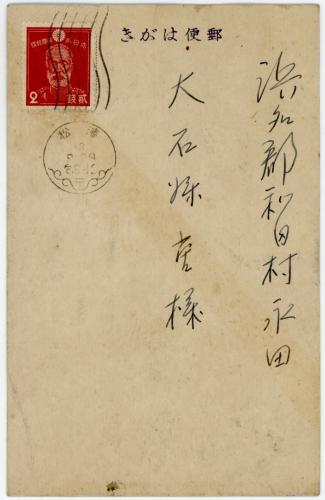 郵便はがき
大日本帝國郵便
2
貳錢
濱松
浜名郡和田村永田
大石
様